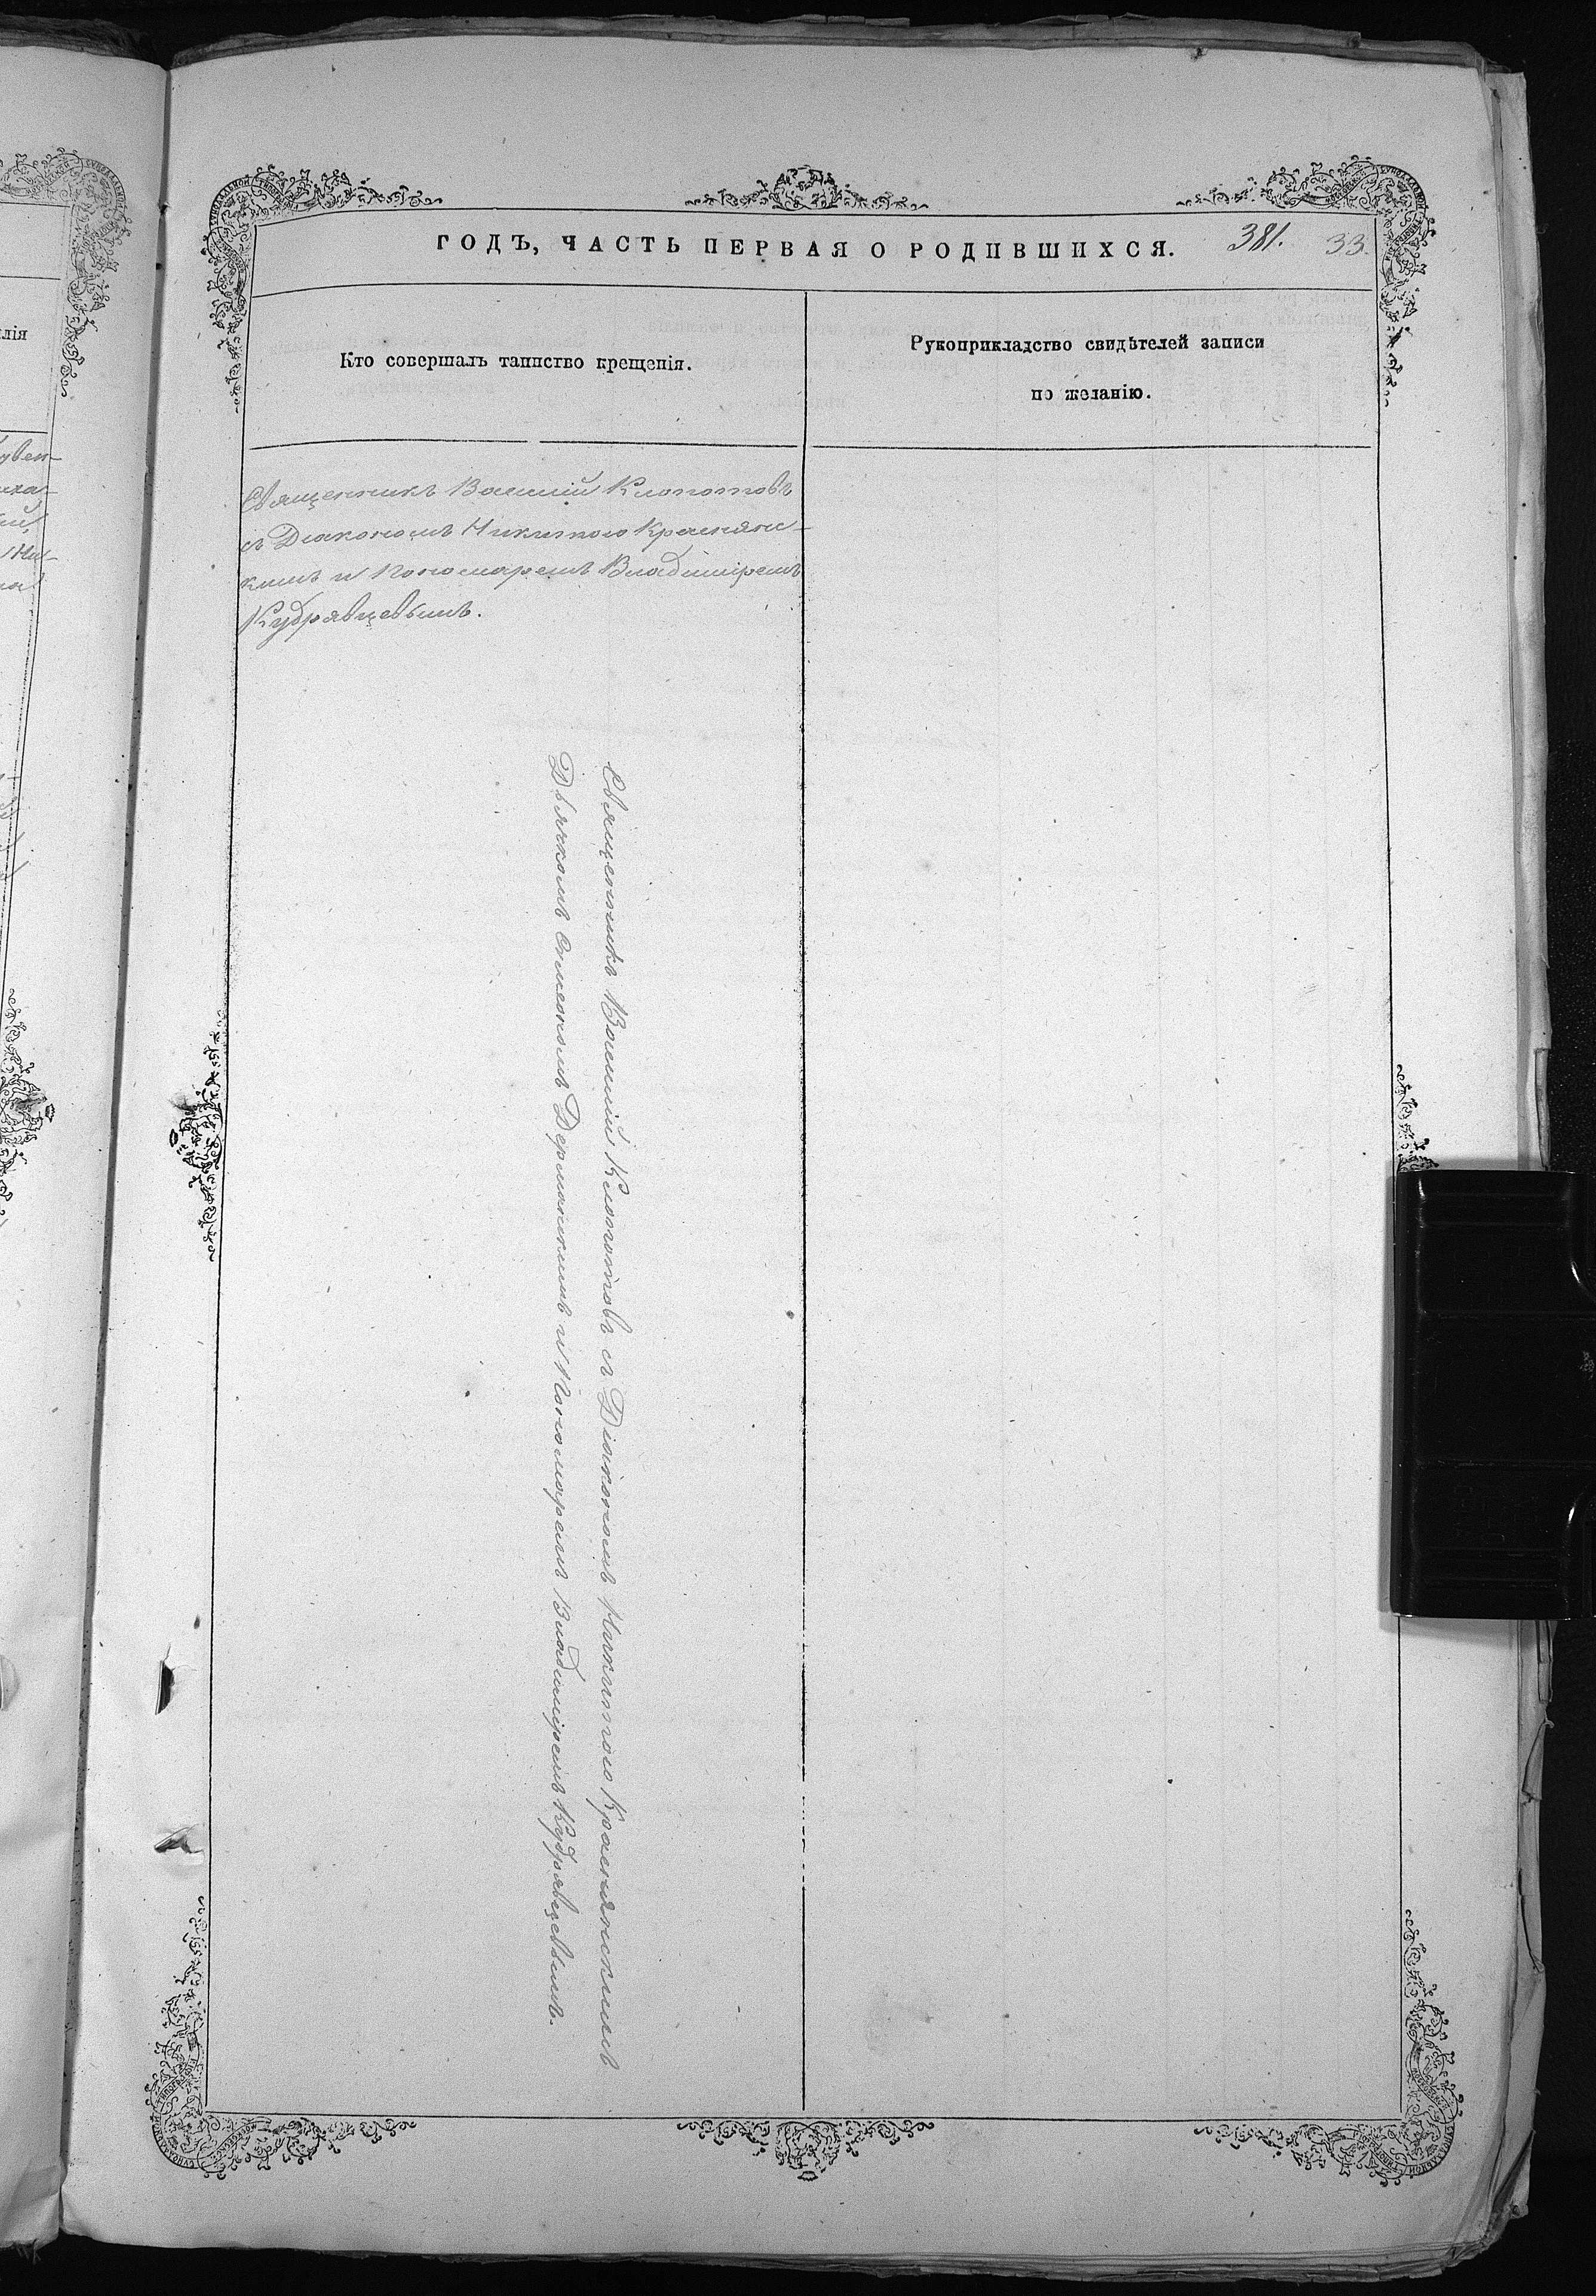 ГОДЪ, ЧАСТЬ ПЕРВАЯ О РОДИВШИХСЯ. 381. 33.
Кто совершалъ таинство крещенія.
Рукоприкладство свидѣтелей записи
по желанію.
Священникъ Василій Клопотовъ
съ Діакономъ Никитою Краснянс-
кимъ и Пономаремъ Владиміремъ
Кудрявцевымъ.
Священникъ Василій Клопотовъ съ Діакономъ Никитою Краснянскимъ
Дьячкомъ Симеономъ Германскимъ и Пономаремъ Владиміремъ Кудрявцевымъ.
лія